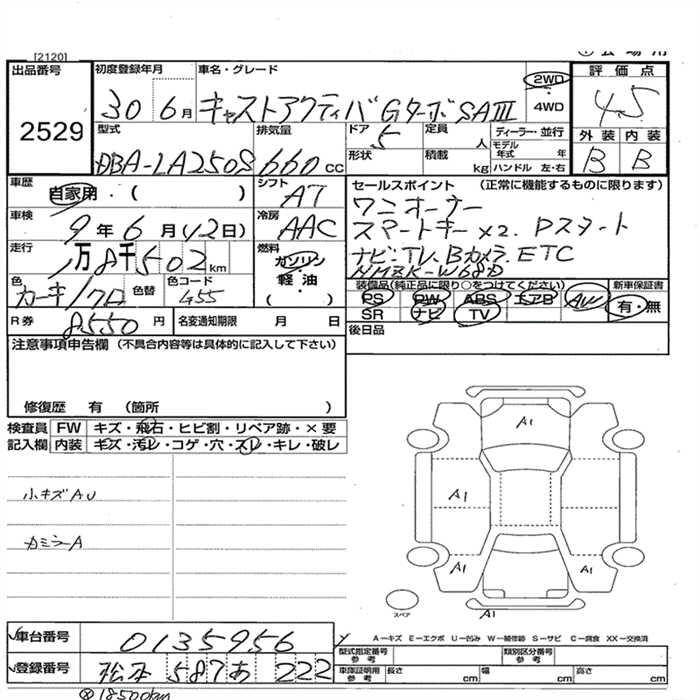 [2120]
出品番号 初度登録年月 車名・グレード 2WD 評価点
2529 30 6月 キャストアクティバGターボSAIII ・ 4WD 4.5
型式 排気量 ドア 定員 ディーラー・並行 外装 内装
DBA-LA250S 660cc 5 人 モデル年式 年 B B
形状 積載 kg ハンドル 左・右
車歴 自家用・( ) シフト AT セールスポイント (正常に機能するものに限ります)
ワンオーナー
車検 9年6月(2日) 冷房 AAC スマートキー×2. Pスタート
走行 1万8千502km 燃料 ガソリン ナビ・TV.Bカメラ.ETC
軽油 NMZK-W68D
色 カーキ/クロ 色替 色コード 455 ( ) 装備品(純正品に限り○をつけてください) 新車保証書
PS PW ABS エアB AW 有・無
R券 8550円 名変通知期限 月 日 SR ナビ TV
注意事項申告欄 (不具合内容等は具体的に記入して下さい) 後日品
修復歴 有 (箇所 )
検査員 FW キズ・飛石・ヒビ割・リペア跡・×要
記入欄 内装 キズ・汚レ・コゲ・穴・スレ・キレ・破レ
A1
小キズAU A1
カミラーA
A1 A1
スペア A1
A―キズ E―エクボ U―凹み W―補修跡 S―サビ C―腐食 XX―交換済
車台番号 0135956 型式指定番号 参考 類別区分番号 参考
登録番号 松本 587あ 222 車庫証明用 参考 長さ cm 幅 cm 高さ cm
18500km